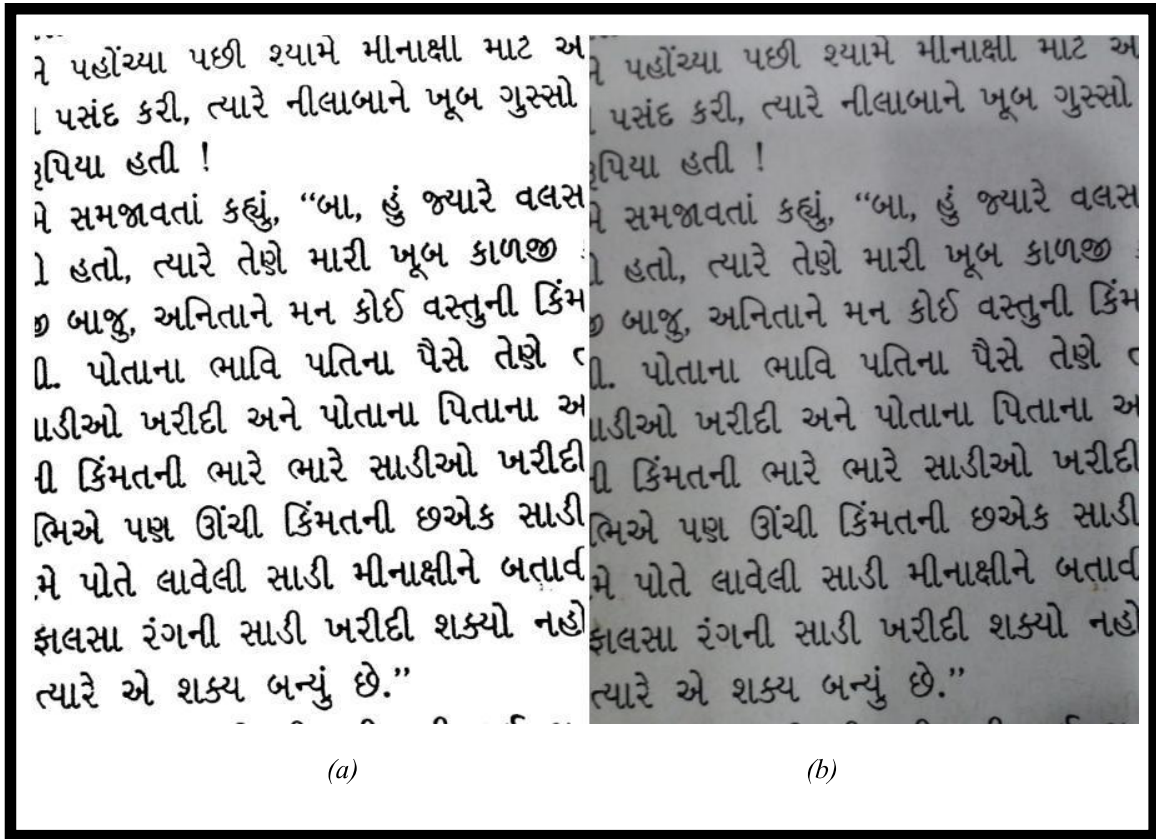 ને પહોંચ્યા પછી શ્યામે મીનાક્ષી માટે અ
પસંદ કરી, ત્યારે નીલાબાને ખૂબ ગુસ્સો
રૂપિયા હતી !
મે સમજાવતાં કહ્યું, “બા, હું જ્યારે વલસ
હતો, ત્યારે તેણે મારી ખૂબ કાળજી
જી બાજુ, અનિતાને મન કોઈ વસ્તુની કિંમ
પોતાના ભાવિ પતિના પૈસે તેણે ત
સાડીઓ ખરીદી અને પોતાના પિતાના અ
ની કિંમતની ભારે ભારે સાડીઓ ખરીદી
ભિએ પણ ઊંચી કિંમતની છએક સાડી
મે પોતે લાવેલી સાડી મીનાક્ષીને બતાવ
ફાલસા રંગની સાડી ખરીદી શક્યો નહો
ત્યારે એ શક્ય બન્યું છે.”
(a)
ને પહોંચ્યા પછી શ્યામે મીનાક્ષી માટે અ
પસંદ કરી, ત્યારે નીલાબાને ખૂબ ગુસ્સો
રૂપિયા હતી !
મે સમજાવતાં કહ્યું, “બા, હું જ્યારે વલસ
હતો, ત્યારે તેણે મારી ખૂબ કાળજી
જી બાજુ, અનિતાને મન કોઈ વસ્તુની કિંમ
પોતાના ભાવિ પતિના પૈસે તેણે ત
સાડીઓ ખરીદી અને પોતાના પિતાના અ
ની કિંમતની ભારે ભારે સાડીઓ ખરીદી
ભિએ પણ ઊંચી કિંમતની છએક સાડી
મે પોતે લાવેલી સાડી મીનાક્ષીને બતાવ
ફાલસા રંગની સાડી ખરીદી શક્યો નહો
ત્યારે એ શક્ય બન્યું છે.”
(b)